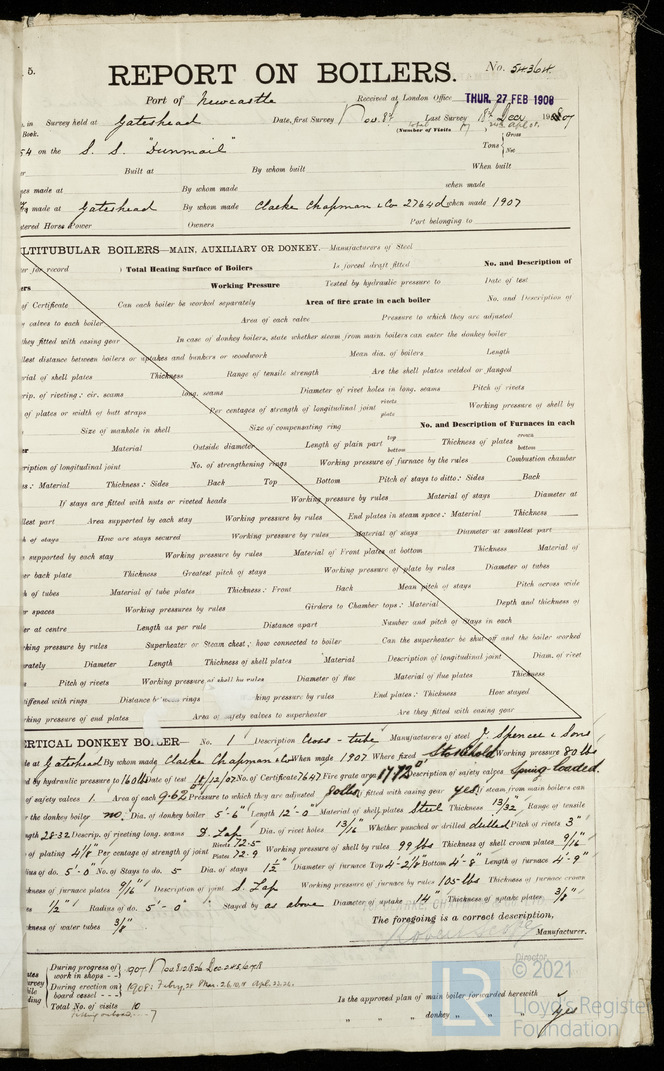 5.
REPORT ON BOILERS.
No. 54364.
Port of Newcastle
Received at London Office THUR. 27 FEB 1908
in Survey held at Gateshead Date, first Survey Nov. 8th Last Survey 18th Decr 1907
Book.
(Number of Visits
54 on the S. S. "Dunmail"
Tons { Gross
Net
Built at By whom built When built
made at By whom made when made
made at Gateshead By whom made Clarke Chapman & Co 2764d when made 1907
Horse Power Owners Port belonging to
LTITUBULAR BOILERS—MAIN, AUXILIARY OR DONKEY.—Manufacturers of Steel
for record ) Total Heating Surface of Boilers Is forced draft fitted No. and Description of
Working Pressure Tested by hydraulic pressure to Date of test
of Certificate Can each boiler be worked separately Area of fire grate in each boiler No. and Description of
valves to each boiler Area of each valve Pressure to which they are adjusted
they fitted with easing gear In case of donkey boilers, state whether steam from main boilers can enter the donkey boiler
distance between boilers or uptakes and bunkers or woodwork Mean dia. of boilers Length
of shell plates Thickness Range of tensile strength Are the shell plates welded or flanged
of riveting: cir. seams long. seams Diameter of rivet holes in long. seams Pitch of rivets
of plates or width of butt straps Per centages of strength of longitudinal joint rivets plate Working pressure of shell by
Size of manhole in shell Size of compensating ring No. and Description of Furnaces in each
Material Outside diameter Length of plain part top bottom Thickness of plates crown bottom
of longitudinal joint No. of strengthening rings Working pressure of furnace by the rules Combustion chamber
: Material Thickness: Sides Back Top Bottom Pitch of stays to ditto: Sides Back
If stays are fitted with nuts or riveted heads Working pressure by rules Material of stays Diameter at
part Area supported by each stay Working pressure by rules End plates in steam space: Material Thickness
of stays How are stays secured Working pressure by rules Material of stays Diameter at smallest part
supported by each stay Working pressure by rules Material of Front plates at bottom Thickness Material of
back plate Thickness Greatest pitch of stays Working pressure of plate by rules Diameter of tubes
of tubes Material of tube plates Thickness: Front Back Mean pitch of stays Pitch across wide
spaces Working pressures by rules Girders to Chamber tops: Material Depth and thickness of
at centre Length as per rule Distance apart Number and pitch of Stays in each
pressure by rules Superheater or Steam chest; how connected to boiler Can the superheater be shut off and the boiler worked
Diameter Length Thickness of shell plates Material Description of longitudinal joint Diam. of rivet
Pitch of rivets Working pressure of shell by rules Diameter of flue Material of flue plates Thickness
with rings Distance between rings king pressure by rules End plates: Thickness How stayed
pressure of end plates Area of safety valves to superheater Are they fitted with easing gear
ERTICAL DONKEY BOILER— No. 1 Description Cross-tube Manufacturers of steel J. Spencer & Sons
at Gateshead By whom made Clarke Chapman & Co When made 1907 Where fixed Stokehold Working pressure 80 lbs
by hydraulic pressure to 160 lbs Date of test 18/12/07 No. of Certificate 7647 Fire grate area Description of safety valves Spring-loaded.
of safety valves 1 Area of each 9.62 Pressure to which they are adjusted 80 lbs fitted with easing gear yes. If steam from main boilers can
the donkey boiler no. Dia. of donkey boiler 5'-6" Length 12'-0" Material of shell plates Steel Thickness 13/32" Range of tensile
28-32 Descrip. of riveting long. seams D. Lap Dia. of rivet holes 13/16" Whether punched or drilled drilled Pitch of rivets 3"
of plating 4 1/8" Per centage of strength of joint Rivets 72.5 Plates 72.9 Working pressure of shell by rules 99 lbs Thickness of shell crown plates 9/16"
of do. 5'-0" No. of Stays to do. 5 Dia. of stays 1 1/2" Diameter of furnace Top 4'-2 1/8" Bottom 4'-8" Length of furnace 4'-9"
of furnace plates 9/16" Description of joint S. Lap Working pressure of furnace by rules 105 lbs Thickness of furnace crown
1/2" Radius of do. 5'-0" Stayed by as above Diameter of uptake 14" Thickness of uptake plates 3/8"
of water tubes 3/8"
The foregoing is a correct description,
Manufacturer.
Director
During progress of work in shops - - 1907 Nov. 8.12.18.26 Dec. 2.4.5.6.7.18
During erection on board vessel - - - 1908: Feby. 28 Mar. 26.10.4 Apl. 22.26.
Total No. of visits 10
Is the approved plan of main boiler forwarded herewith
" " donkey " " " yes
LR
© 2021
Lloyd's Register
Foundation